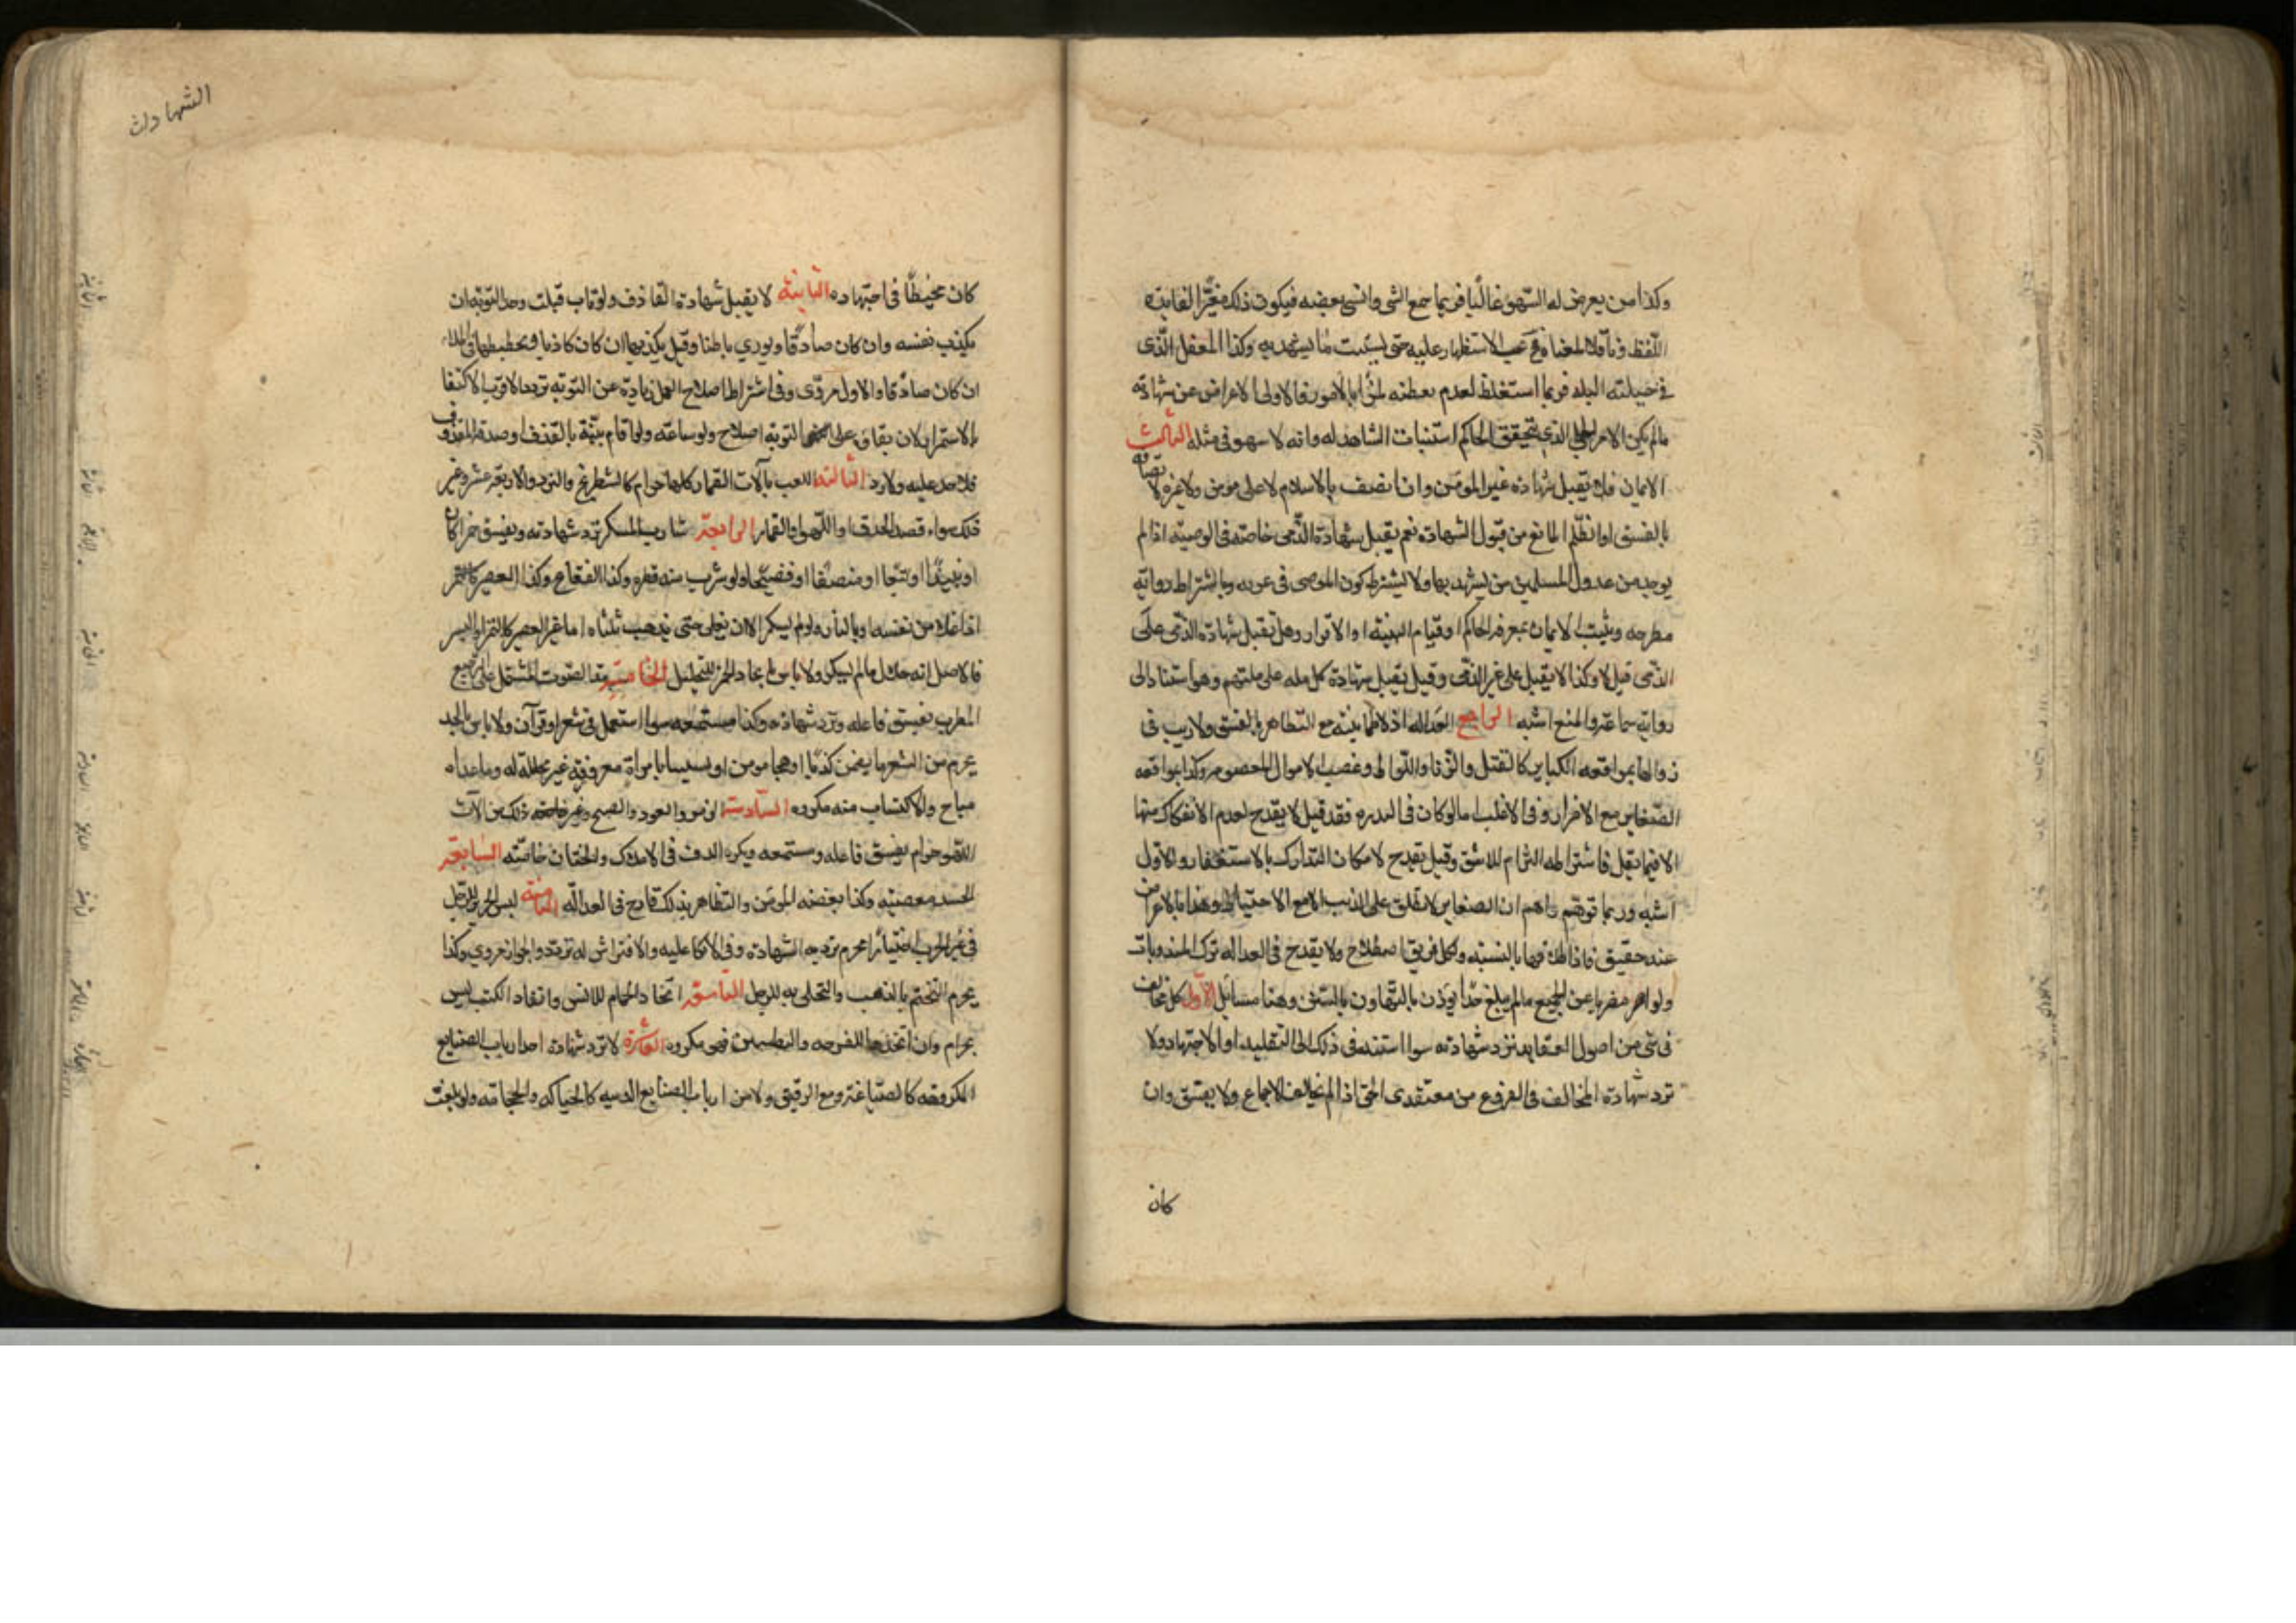 وكذا من يعرض له السهو غالبا فربما سمع الشى وانسى بعضه فيكون ذلك مغيرا لفايدة
اللفظ وناقلا لمعناه فح يجب الاستظهار عليه حتى يستثبت ما يشهد به وكذا المغفل الذى
فى جبلته البله فربما استغلط لعدم تفطنه لمزايا الامور فالاولى الاعراض عن شهادته
مالم يكن الامر الجلى الذى يتحقق الحاكم استثبات الشاهد له وانه لا يسهو فى مثله الثالث
الايمان فلا تقبل شهادة غير المومن وان اتصف بالاسلام لا على مومن ولا غيره لاتصافه
بالفسق او الظلم المانع من قبول الشهادة نعم تقبل شهادة الذمى خاصة فى الوصية اذا لم
يوجد من عدول المسلمين من يشهد بها ولا يشترط كون الموصى فى غربه وباشتراط رواية
مطرحه ويثبت الايمان بمعرفه الحاكم او قيام البينة او الاقرار وهل تقبل شهادة الذمى على
الذمى قيل لا وكذا لا تقبل على غير الذمى وقيل تقبل شهادة كل مله على ملتهم وهو استنادا الى
رواية سماعة والمنع اشبه الرابع العداله اذ لا طمانينة مع التظاهر بالفسق ولا ريب فى
زوالها بمواقعه الكباير كالقتل والزنا واللواط وغصب الاموال المعصومه وكذا بمواقعه
الصغاير مع الاصرار او فى الاغلب اما لو كان فى الندره فقد قيل لا يقدح لعدم الانفكاك منها
الا فيما يقل فاشتراطه التزام للاشق وقيل يقدح لامكان التدارك بالاستغفار والاول
اشبه وربما توهم واهم ان الصغاير لا تطلق على الذنب الا مع الاحباط وهذا بالاعراض
عنه حقيق فان اطلاقها بالنسبه ولكل فريق اصطلاح ولا يقدح فى العداله ترك المندوبات
ولو اصر مضربا عن الجميع مالم يبلغ حدا يوذن بالتهاون بالسنن وهنا مسايل الاول كل مخالف
فى شى من اصول العقايد ترد شهادته سوا استند فى ذلك الى التقليد او الاجتهاد ولا
ترد شهادة المخالف فى الفروع من معتقدى الحق اذا لم يخالف الاجماع ولا يفسق وان
كان
الشهادات
كان مخطئا فى اجتهاده الثانية لا يقبل شهادة القاذف ولو تاب قبلت وحد التوبة ان
يكذب نفسه وان كان صادقا ويورى باطنا وقيل يكذبها ان كان كاذبا ويخطيها فى الملاء
ان كان صادقا والاول مروى وفى اشتراط اصلاح العمل زيادة عن التوبه تردد الاقرب الاكتفا
بالاستمرار لان بقاه على التوبه اصلاح ولو ساعة ولو اقام بينة بالقذف او صدقه المقذوف
فلا حد عليه ولا رد الثالثة اللعب بآلات القمار كلها حرام كالشطرنج والنرد والاربعة عشر وغير
ذلك سواء قصد الحذق او اللهو او القمار الرابعة شارب المسكر ترد شهادته ويفسق خمرا كان
او نبيذا او بتعا او منصفا او فضيخا ولو شرب منه قطره وكذا الفقاع وكذا العصير
اذا غلا من نفسه او بالنار ولو لم يسكر الا ان يغلى حتى يذهب ثلثاه اما غير العصير كالتمر او البسر
فالاصل انه حلال مالم يسكر ولا باس باتخاد الخمر للتخليل الخامسة مد الصوت المشتمل على الترجيع
المطرب يفسق فاعله وترد شهادته وكذا مستمعه سوا استعمل فى شعر او قرآن ولا باس بالحدا
يحرم من الشعر ما يضمن كذبا او هجا مومن او تشبيبا بامراة معروفة غير محللة له وما عداه
مباح والاكثار منه مكروه السادسة الزمر والعود والصنج وغير ذلك من آلات
اللهو حرام يفسق فاعله ومستمعه ويكره الدف فى الاملاك والختان خاصة السابعة
الحسد معصيته وكذا بغضه المومن والتظاهر بذلك قادح فى العدالة الثامنة لبس الحرير للرجل
فى غير الحرب اختيارا محرم ترد به الشهادة وفى الاتكا عليه والافتراش له تردد والجواز مروي وكذا
يحرم التختم بالذهب والتحلى به للرجل التاسعة اتخاذ الحمام للانس وانفاد الكتب ليس
بحرام وان اتخذها للفرجه والتطير فهو مكروه العاشرة لا ترد شهادة احد ارباب الصنايع
المكروهه كالصياغة وبيع الرقيق ولا من ارباب الصنايع الدنيه كالحياكه والحجامة ولو بلغت